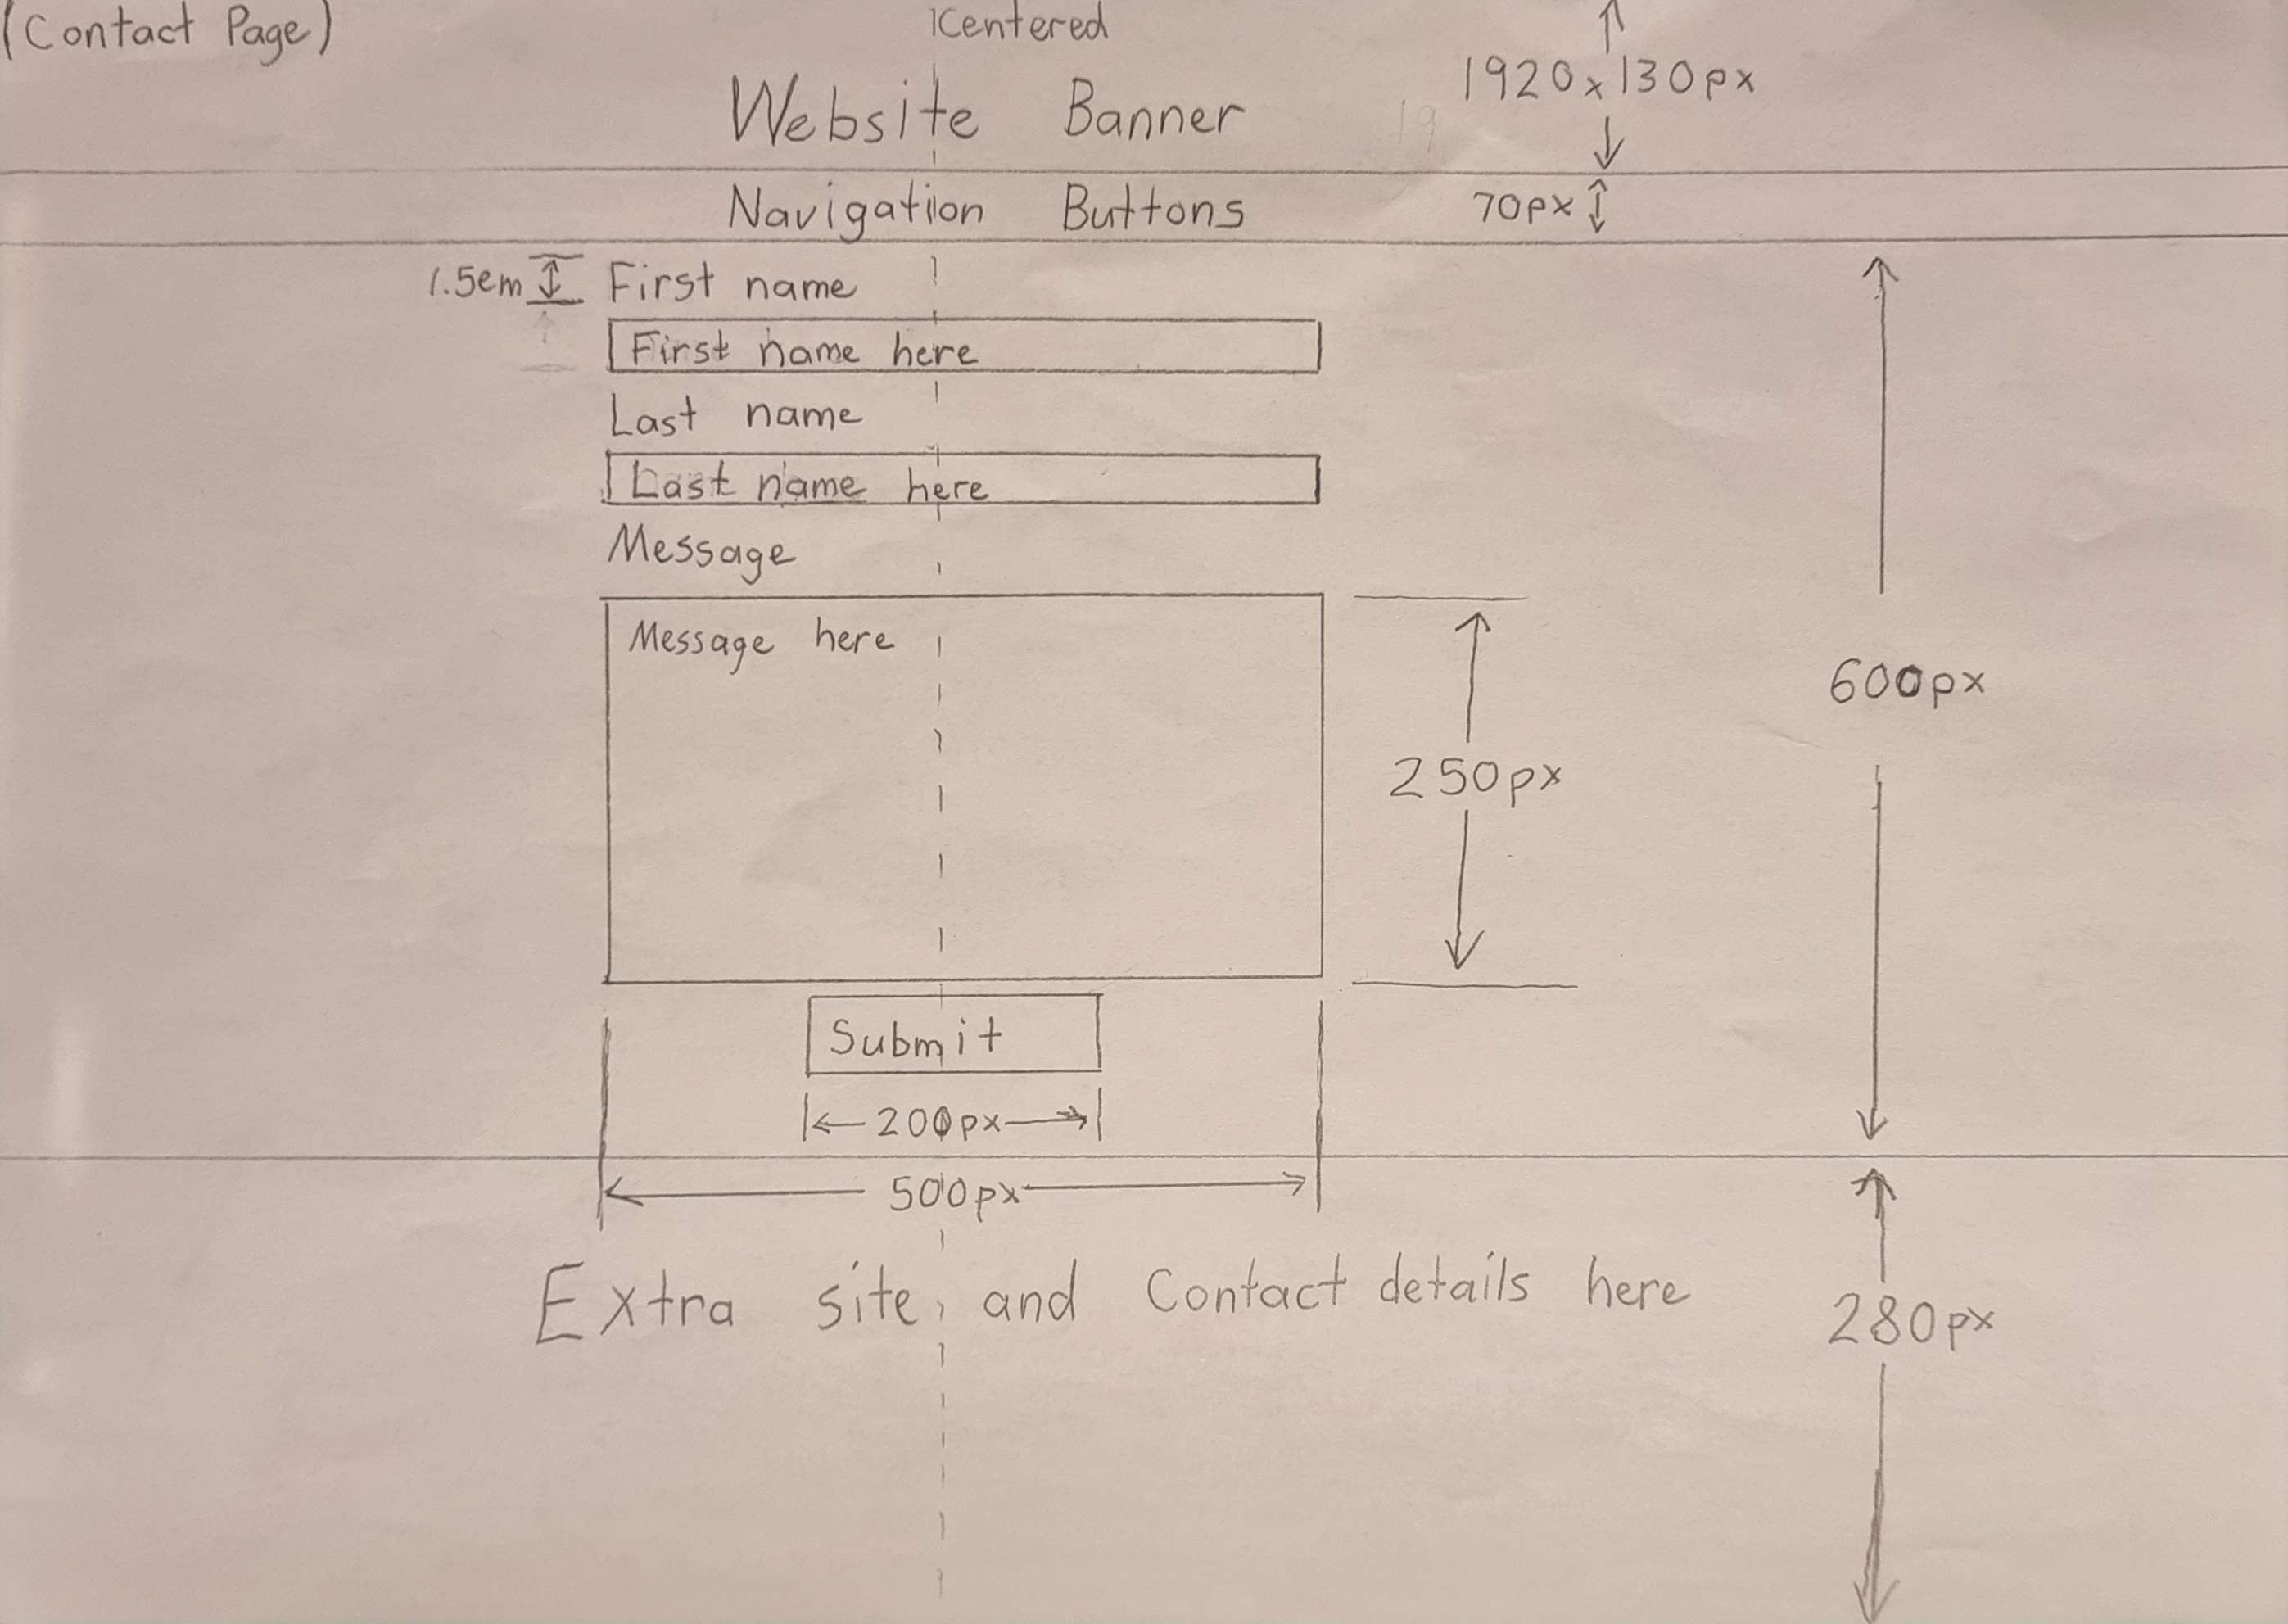 (Contact Page)
Centered
1920x130px
Website Banner
Navigation Buttons
70px
1.5em
First name
First name here
Last name
Last name here
Message
Message here
600px
250px
Submit
200px
500px
Extra site, and Contact details here
280px